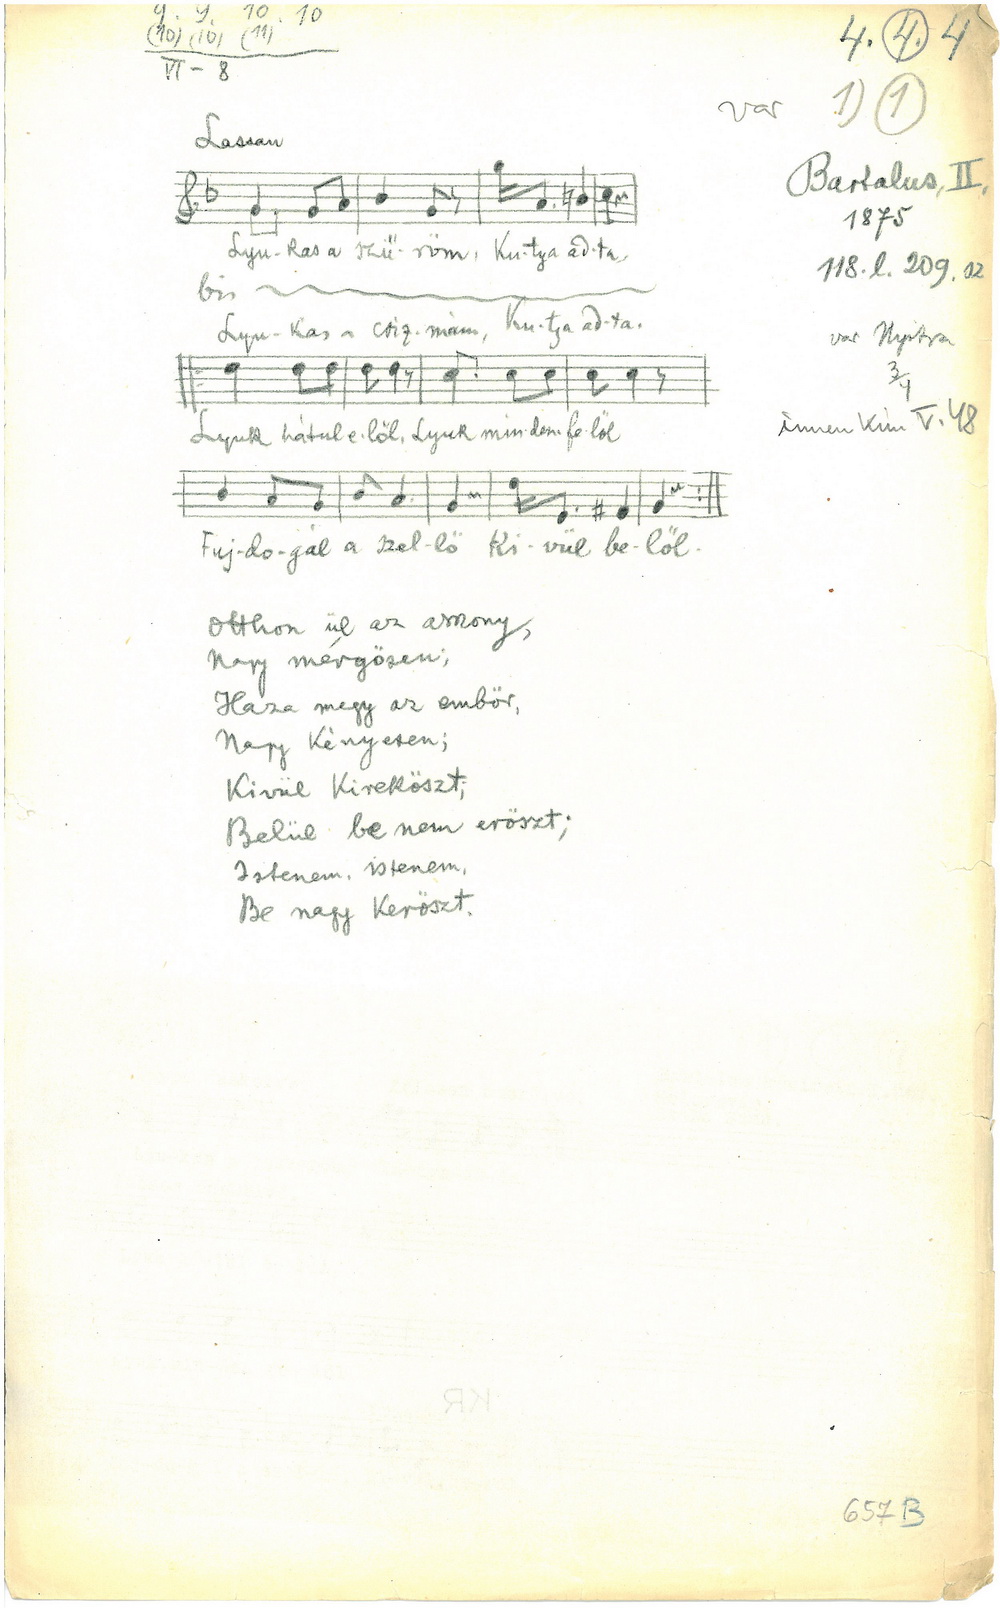 9. 9. 10. 10
(10) (10) (11)
VI - 8
4. 4. 4
var 1) 1
Lassan
Bartalus, II.
1875
118. l. 209. sz
Lyu-kas a szü-röm, Ku-tya ad-ta,
bis
Lyu-kas a csiz-mám, Ku-tya ad-ta.
var Nyitra
3/4
innen Kim V. 48
Lyuk hátul e-löl, Lyuk min-den-fe-löl
Fuj-do-gál a szel-lö Ki-vül be-löl.
Otthon ül az asszony,
Nagy mérgösen;
Haza megy az embör,
Nagy kényesen;
Kivül kireköszt;
Belül be nem eröszt;
Istenem, istenem,
Be nagy keröszt.
KR
657 B